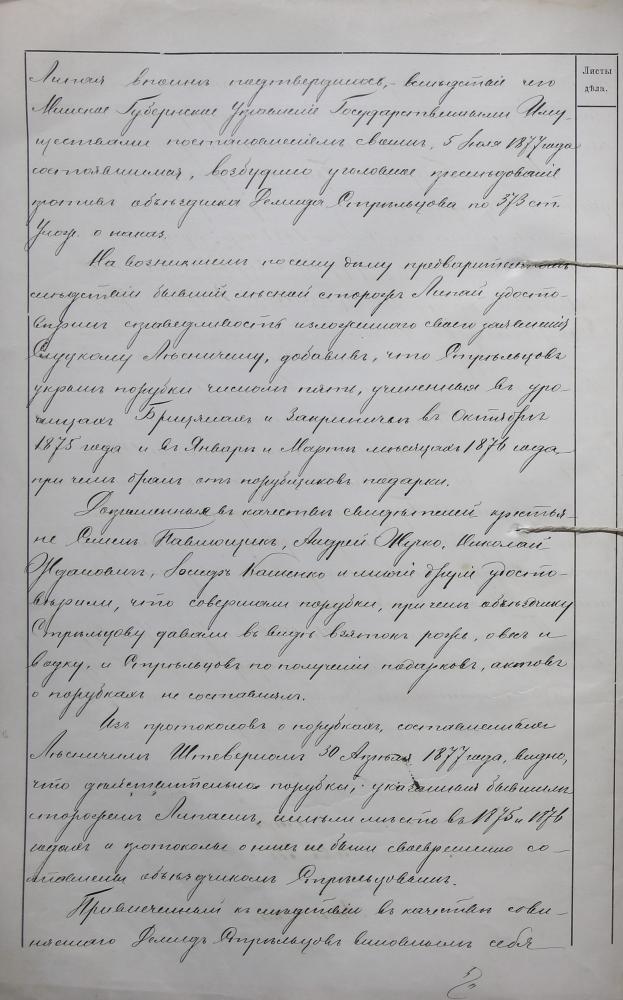 Листы
дѣла.
Липая вполнѣ подтвердилось,- вслѣдствіе чего
Минское Губернское Управленіе Государственными Иму-
ществами постановленіемъ своимъ, 5 Іюля 1877 года
состоявшимся, возбудило уголовное преслѣдованіе
противъ объѣздчика Демида Стрѣльцова по 373 ст.
Улож. о наказ.
На возникшемъ по сему дѣлу предварительномъ
слѣдствіи бывшій лѣсной сторожъ Липай удосто-
вѣрилъ справедливость изложеннаго своего заявленія
Слуцкому Лѣсничему, добавивъ, что Стрѣльцовъ
укрылъ порубки числомъ пять, учиненныя въ уро-
чищахъ и Закриничьи въ Октябрѣ
1875 года и въ Январѣ и Мартѣ мѣсяцахъ 1876 года
при чемъ бралъ отъ порубщиковъ подарки.
Дознанные въ качествѣ свидѣтелей крестья-
не Семенъ Павлющикъ, Андрей Жучко, Николай
Ждановичъ, Іосифъ Кашенко и многіе другіе удосто-
вѣрили, что совершали порубки, при чемъ объѣздчику
Стрѣльцову давали въ видѣ взятокъ рожь, овесъ и
водку, и Стрѣльцовъ по полученіи подарковъ, актовъ
о порубкахъ не составлялъ.
Изъ протоколовъ о порубкахъ, составленныхъ
Лѣсничимъ 30 Апрѣля 1877 года, видно,
что дѣйствительно порубки, указанныя бывшимъ
сторожемъ Липаемъ, имѣли мѣсто въ 1875 и 1876
годахъ и протоколы о нихъ не были своевременно со-
ставлены объѣздчикомъ Стрѣльцовымъ.
Привлеченный къ слѣдствію въ качествѣ обви-
няемаго Демидъ Стрѣльцовъ виновнымъ себя